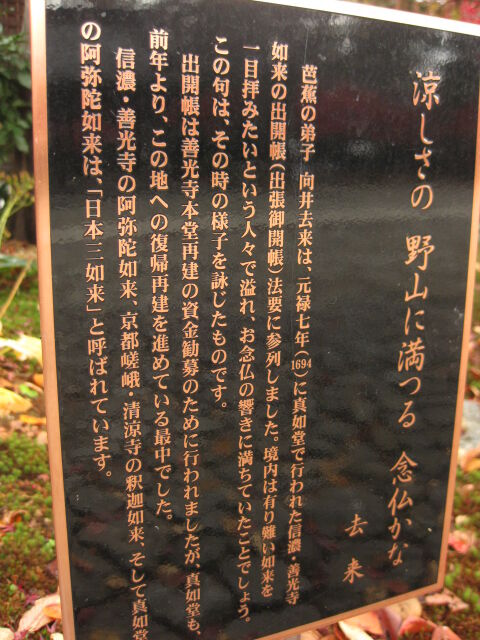 涼しさの 野山に満つる 念仏かな
去来
芭蕉の弟子 向井去来は、元禄七年(1694)に真如堂で行われた信濃・善光寺
如来の出開帳(出張御開帳)法要に参列しました。境内は有り難い如来を
一目拝みたいという人々で溢れ、お念仏の響きに満ちていたことでしょう。
この句は、その時の様子を詠じたものです。
出開帳は善光寺本堂再建の資金勧募のために行われましたが、真如堂も、
前年より、この地への復帰再建を進めている最中でした。
信濃・善光寺の阿弥陀如来、京都嵯峨・清涼寺の釈迦如来、そして真如堂
の阿弥陀如来は、「日本三如来」と呼ばれています。